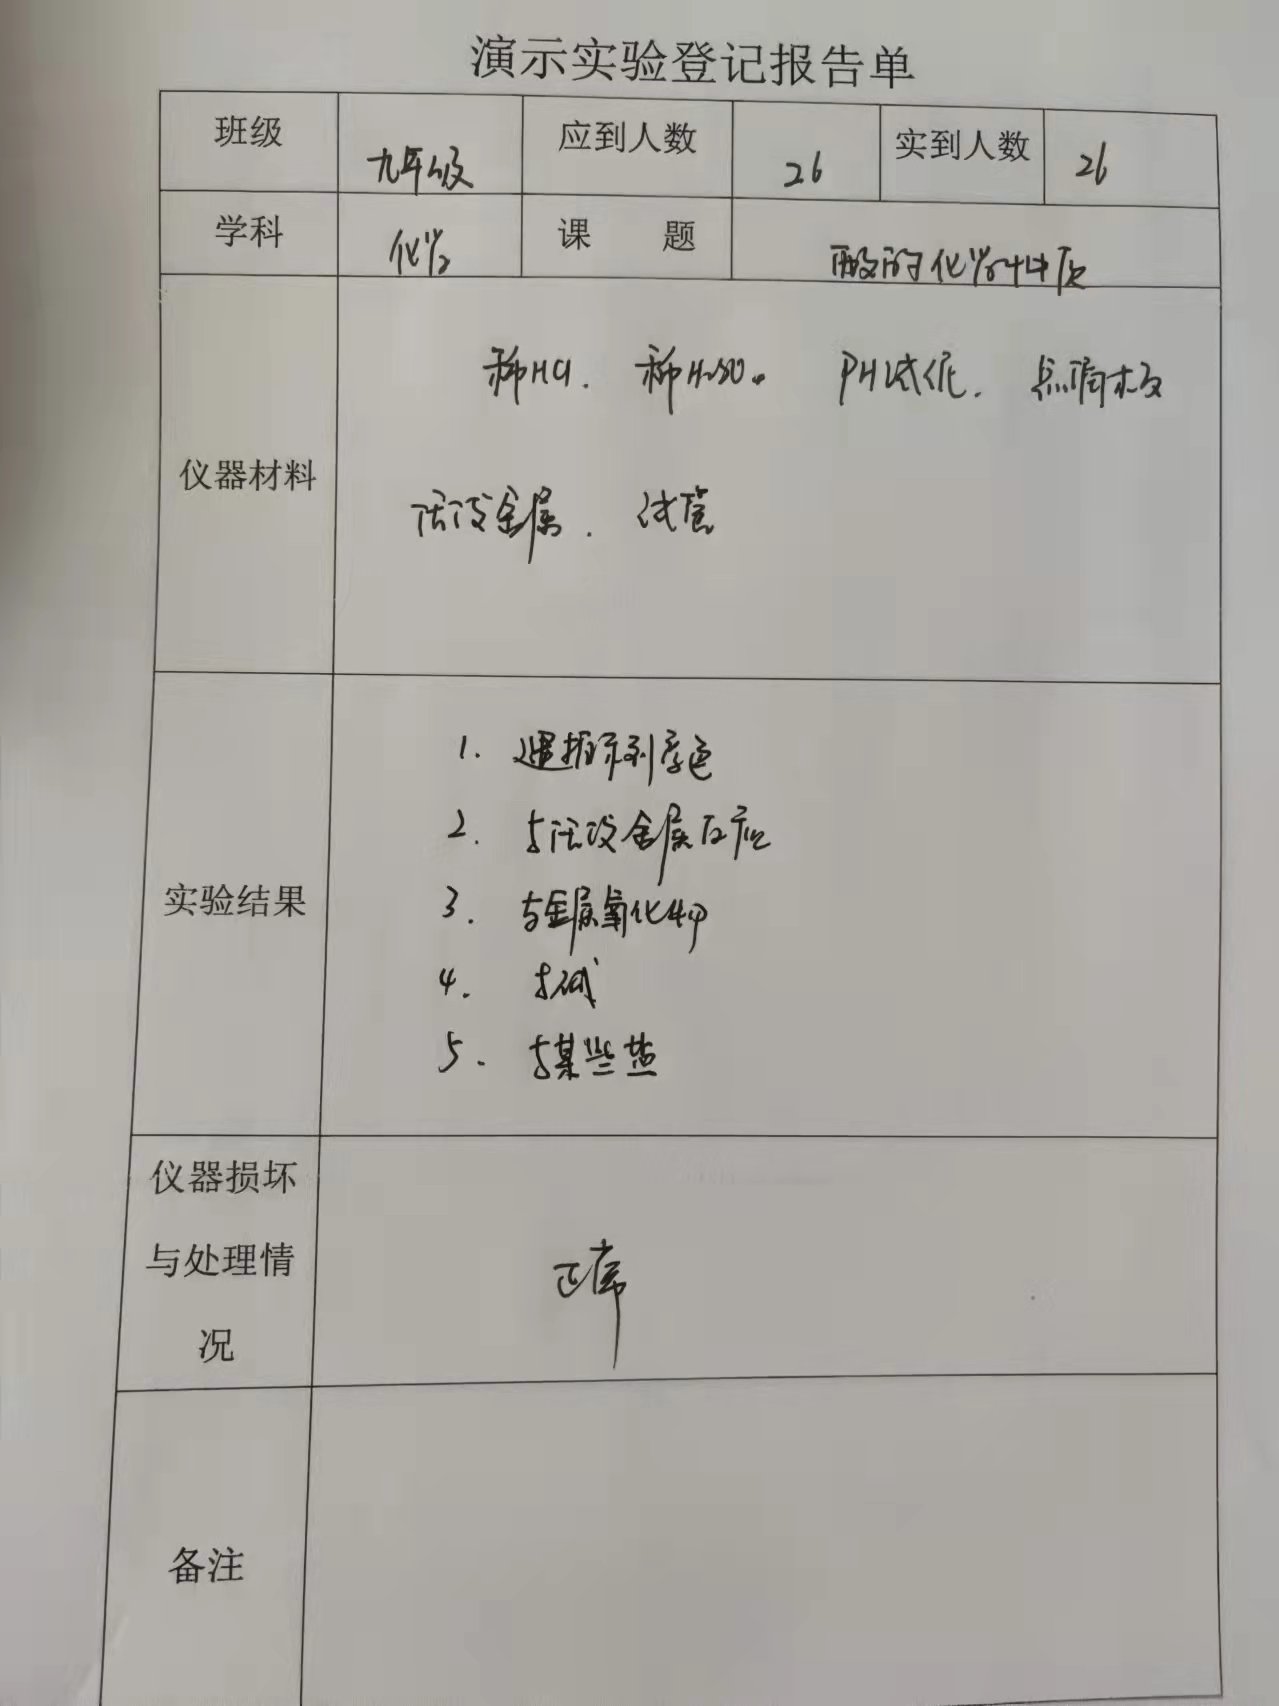 演示实验登记报告单
班级 九年级 应到人数 26 实到人数 26
学科 化学 课 题 酸的化学性质
仪器材料
稀HCl. 稀H₂SO₄ PH试纸. 点滴板
活泼金属. 试管
实验结果
1. 遇指示剂变色
2. 与活泼金属反应
3. 与金属氧化物
4. 与碱
5. 与某些盐
仪器损坏
与处理情
况
正常
备注